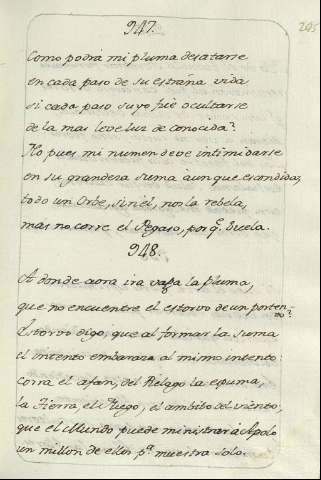 947.
245
Como podrà mi pluma desatarse
en cada paso de su estraña vida
si cada paso suyo fuè ocultarse
de la mas leve luz de conocida?
No pues mi numen deve intimidarse
en su grandesa suma àunque escondida;
todo un Orbe, sin èl, nos la rebela,
mas no corre el Pegaso, porq.e buela.
948.
A donde aora ira vaga la pluma,
que no encuentre el estorvo de un porten-
to?
Estorvo digo, que al formar la suma
el intento embaraza al mismo intento:
corra el afan, del Pielago la espuma,
la Tierra, el Fuego, el ambito del viento,
que el Mundo puede ministrar à Apolo
un millon de ellos p.a muestra solo.